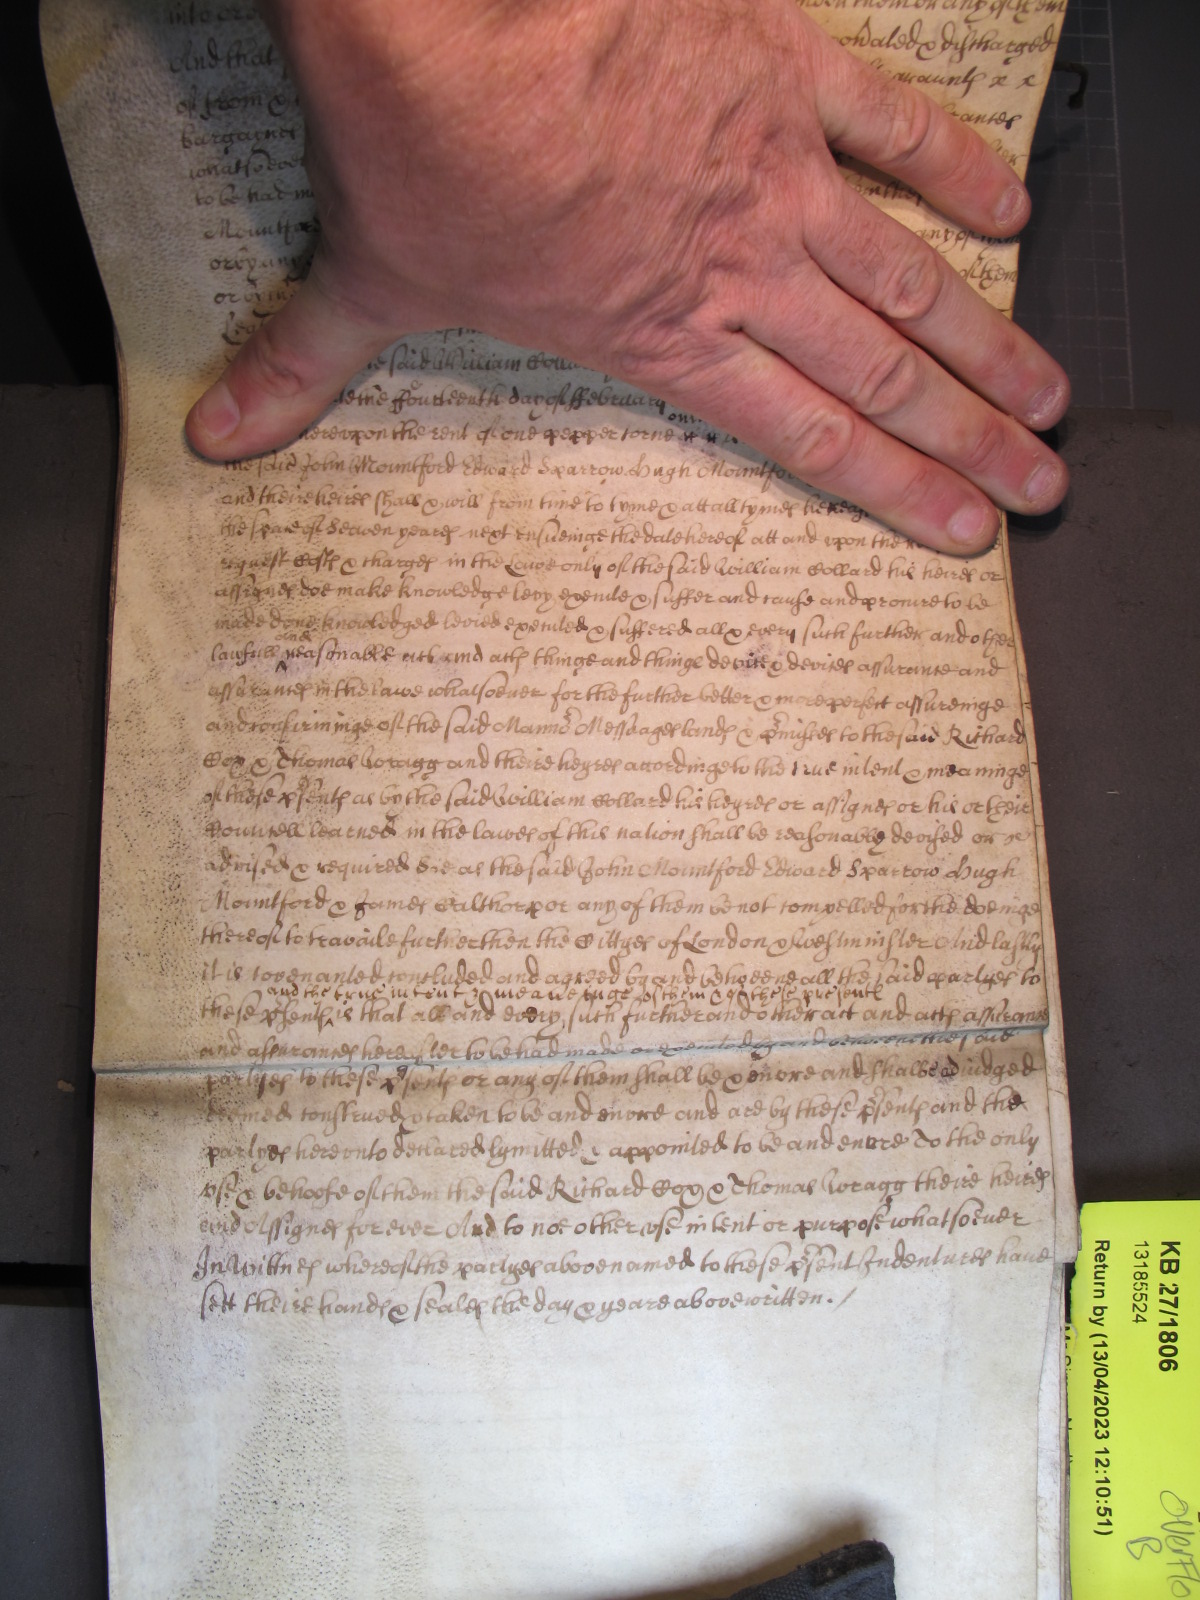 into
them or any of them
And that
discharged
of from &
x x
bargaines
whatsoever
to be had
Mountford
any of them
or by any
of them
or
said William Collard
the fourteenth day of ffebruary
hereupon the rent of one pepper corne
the said John Mountford Edward Sparrow Hugh Mountford
and theire heires shall & will from time to tyme & att all tymes
the space of Seaven yeares next ensueinge the date hereof att and upon the
request Costs & charges in the Lawe only of the said William Collard his heires or
assignes doe make knowledge levy execute & suffer and cause and procure to be
made done knowledged levied executed & suffered all & every such further and other
and
lawfull reasonable acts and acts thinge and things devise & devises assurance and
assurances in the lawe whatsoever for the further better & more perfect assureinge
and confirminge of the said Mannor Messuages lands & pmisses to the said Richard
Cox & Thomas Wragg and theire heyres accordinge to the true intent & meaninge
of these psents as by the said William Collard his heyres or assignes or his or their
Councell learned in the lawes of this nation shall be reasonably devised or x
advised & required Soe as the said John Mountford Edward Sparrow Hugh
Mountford & James Calthorp or any of them be not compelled for the doeinge
thereof to travaile further then the Cittyes of London & Westminster And lastly
it is covenanted concluded and agreed by and betweene all the said partyes to
and the true intent & meaneinge of them & of these presents
these psents is that all and every such further and other act and acts assurance
and assurances hereafter to be had made or executed by and betweene the said
partyes to these psents or any of them shall be & enure and shalbe adiudged
deemed construed & taken to be and enure and are by these psents and the
partyes hereunto declared lymitted & appointed to be and enure To the only
use & behoofe of them the said Richard Cox & Thomas Wragg theire heires
and Assignes for ever And to noe other use intent or purpose whatsoever
In Wittnes whereof the partyes above named to these psent Indentures have
sett theire hands & seales the day & yeare above written. /
KB 27/1806
13185524
Return by (13/04/2023 12:10:51)
Overflo
B